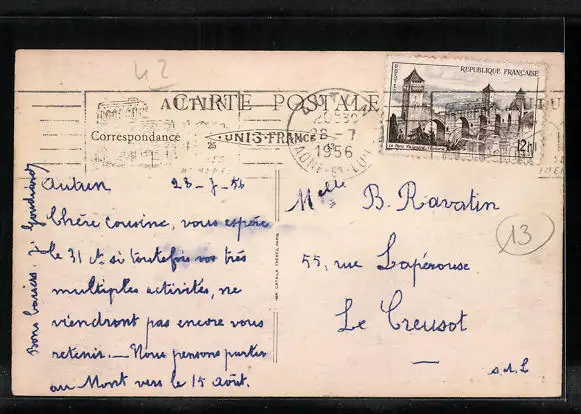 42
CARTE POSTALE
REPUBLIQUE FRANÇAISE
POSTES
12F
Correspondance
UNIS-FRANCE
25
28-7
1956
Autun 28-7-56
Chère cousine, vous espère
le 31 ct si toutefois vos très
multiples activités, ne
viendront pas encore vous
retenir. — Nous pensons partir
au Mont vers le 15 Août.
Bons baisers
Melle B. Ravatin
55, rue Lapérouse
Le Creusot
S. et L
13